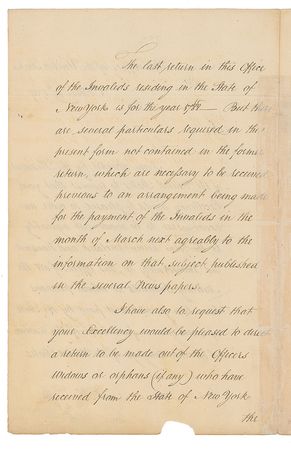 The last return in this Office
of the Invalids residing in the State of
New York is for the year But
are, several particulars required in the
present form not contained in the former
return, which are necessary to be received
previous to an arrangement being made
for the payment of the Invalids in the
month of March next agreably to the
information on that subject published
in the several News papers.
I have also to request that
your Excellency would be pleased to direct
a return to be made out of the Officers
Widows or orphans (if any) who have
received from the State of New York
the